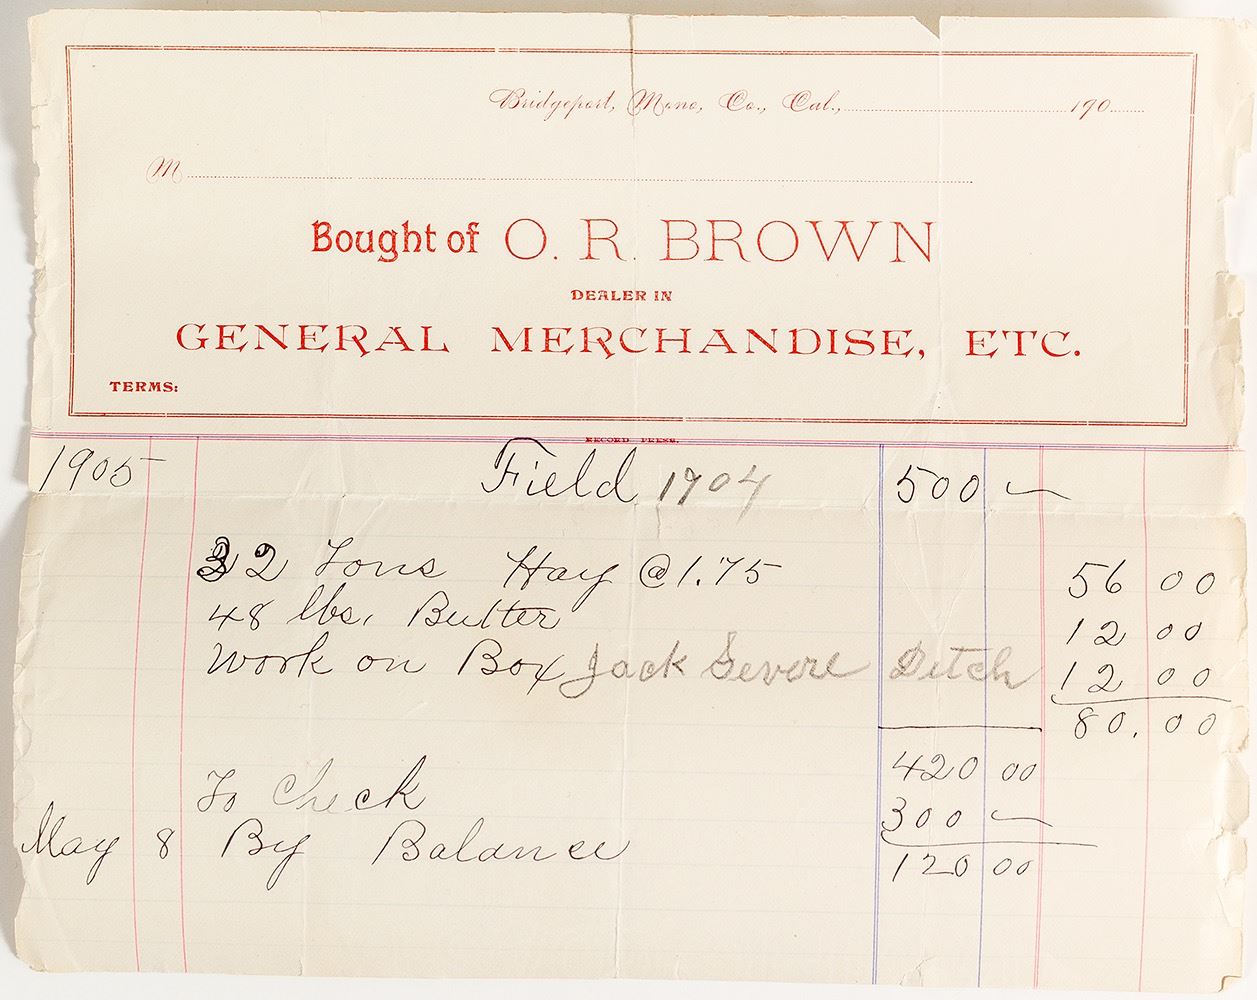 Bridgeport, Mono, Co., Cal., 190
M
Bought of O. R. BROWN
DEALER IN
GENERAL MERCHANDISE, ETC.
TERMS:
RECORD PRESS.
1905 Field 1904 500 —
32 Tons Hay @ 1.75 56 00
48 lbs. Butter 12 00
Work on Box Jack Severe Ditch 12 00
80.00
420 00
To Check 300 —
May 8 By Balance 120 00